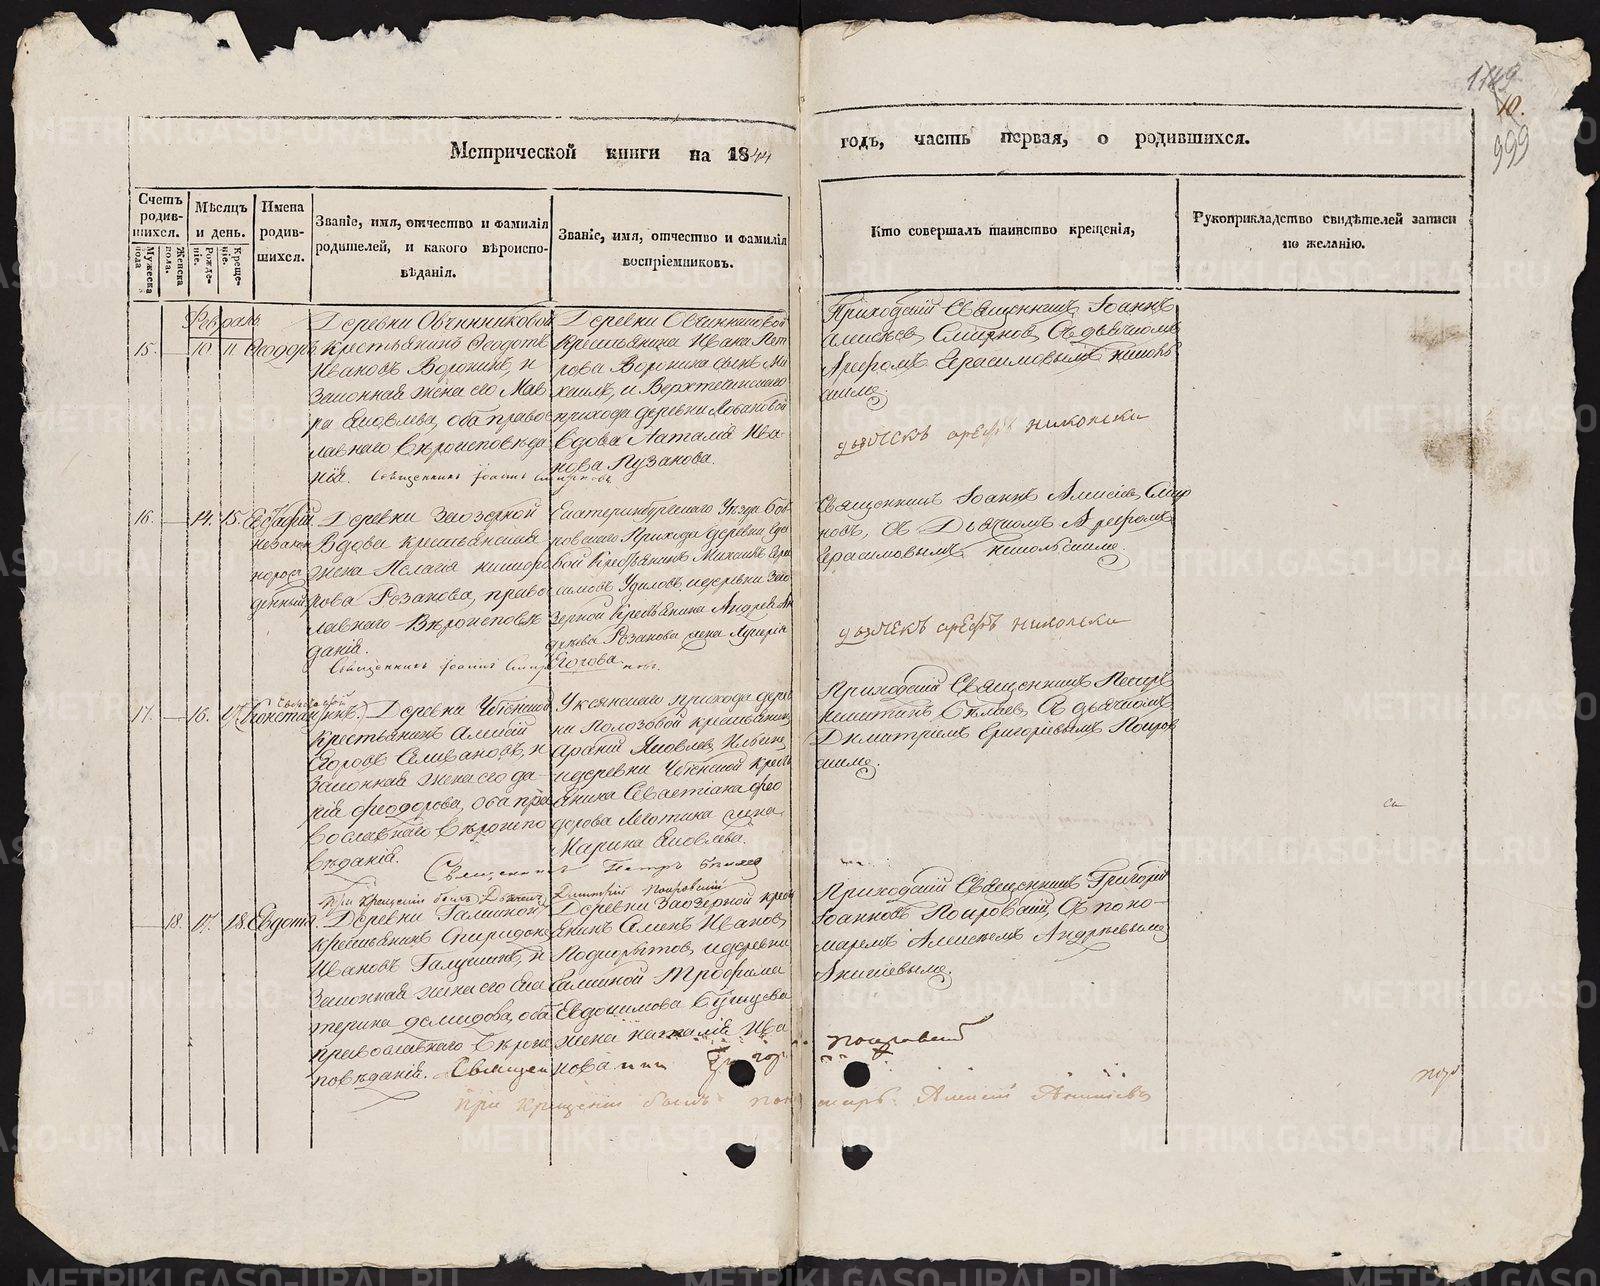 1149
10.
999
Метрической книги на 1844 годъ, часть первая, о родившихся.
Счетъ родившихся.
Мужеска пола
Женска пола.
Мѣсяцъ и день.
Рожденіе.
Крещеніе.
Имена родившихся.
Званіе, имя, отчество и фамилія
родителей, и какого вѣроиспо-
вѣданія.
Званіе, имя, отчество и фамилія
воспріемниковъ.
Кто совершалъ таинство крещенія,
Рукоприкладство свидѣтелей записи
по желанію.
Февраль
15. 10 11 Ѳеодоръ
Деревни Овчинниковой
крестьянинъ
Ивановъ Воронинъ, и
законная жена его Мав
ра Яковлева, оба правос
лавнаго вѣроисповѣда
нія. Священникъ Іоаннъ Смирновъ
Деревни Овчинниковой
крестьянина Ивана Пет
рова Воронина сынъ Ми
хаилъ, и Верхтеченскаго
прихода деревни Лобановой
вдова Наталія Ива
нова Пузанова.
Приходскій Священникъ Іоаннъ
Алексѣевъ Смирновъ, Съ дьячкомъ
Арефомъ Герасимовымъ Николь
скимъ.
дьячекъ арефъ никольски
16. 14. 15. Евстафій
незакон
норож
денный
Деревни Заозерной
Вдова крестьянская
жена Пелагія Никифо
рова Розанова, право
лавнаго Вѣроисповѣ
данія.
Священникъ Іоаннъ Смирновъ.
Екатеринбургскаго Уѣзда Боев
ровскаго Прихода деревни
вой Крестьянинъ Михаилъ Гера
симовъ и деревни Зао
зерной Крестьянина Андрея Ан
дреева Розанова жена Лукерія
Егорова
Священникъ Іоаннъ Алексѣевъ Смир
новъ, Съ Дьячкомъ Арефомъ
Герасимовымъ Никольскимъ.
дьячекъ арефъ никольски
17. 16. 17. Константинъ.
Деревни Чесноковой
крестьянинъ Алексѣй
Егоровъ Селивановъ, и
законная жена его Да-
рія Феодорова, оба пра
вославнаго вѣроиспо
вѣданія.
Священникъ Петръ Бѣляев
Уксянскаго прихода дерев
ни Полозовой крестьянинъ
Яковлевъ Ильинъ,
и деревни крестья
янина Севастіана Фео
дорова жена
Марина Яковлева.
Приходскій Священникъ Петръ
Никитинъ Бѣляевъ, Съ дьячкомъ
Димитріемъ Григорьевымъ Покров
скимъ.
При крещеніи былъ Дьячекъ Димитрій Покровскій
18. 17. 18. Евдокія.
Деревни Галкиной
крестьянинъ Спиридонъ
Ивановъ Галушинъ, и
законная жена его Ека
терина Демидова, оба
православнаго вѣрои
повѣданія. Священ
Деревни Заозерной крес
янинъ Семенъ Ивановъ
Подкорытовъ, и деревни
Галкиной Трофима
Евдокимова
жена Наталія Ива
нова
Григор Покровскій
Приходскій Священникъ Григорій
Іоанновъ Покровскій, Съ поно-
маремъ Алексѣемъ Андреевымъ
Аникіевымъ.
при крещеніи былъ пономарь Алексѣй Аникіевъ